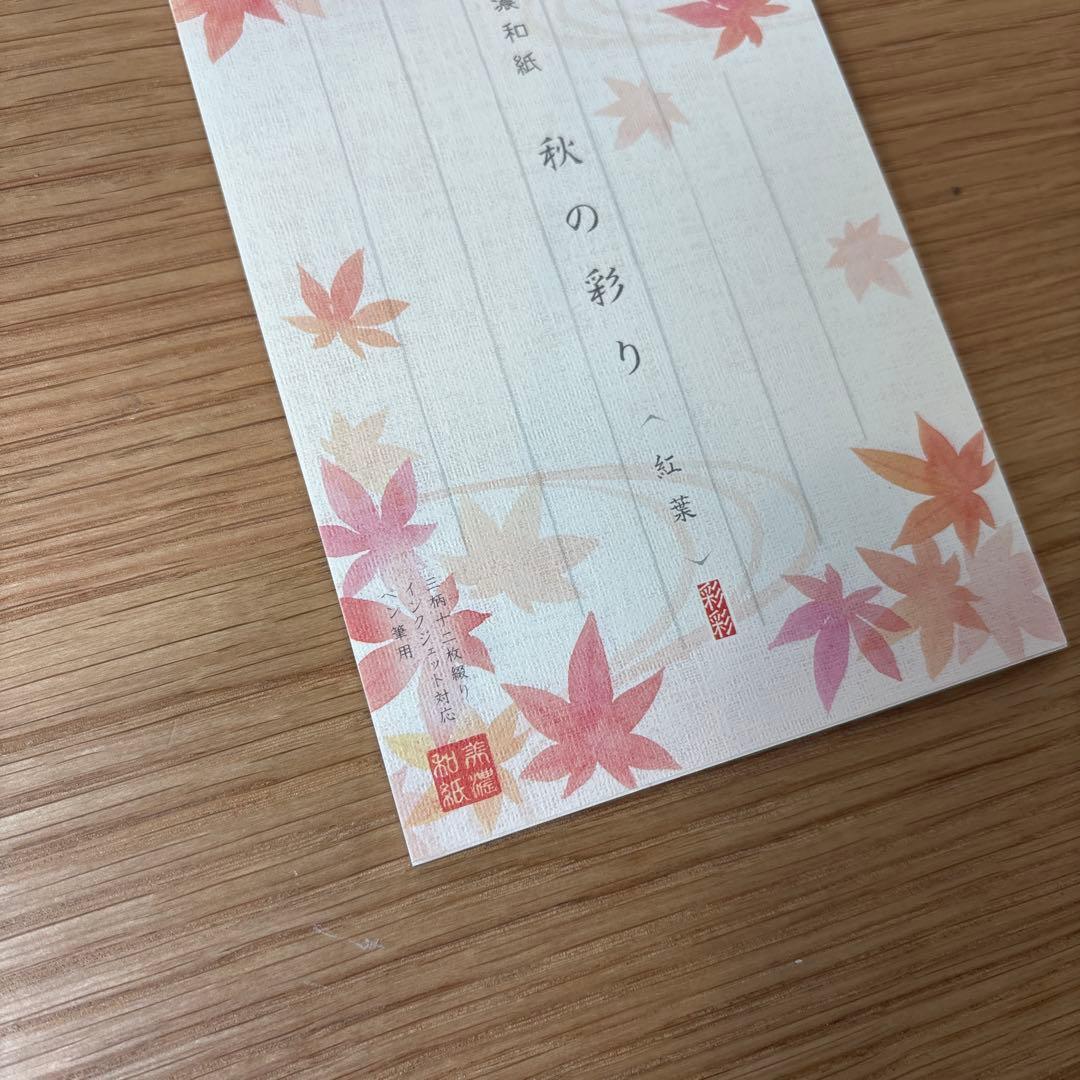 濃和紙
秋の彩り
（紅葉）
彩彩
三柄十二枚綴り
インクジェット対応
ペン筆用
美濃
和紙